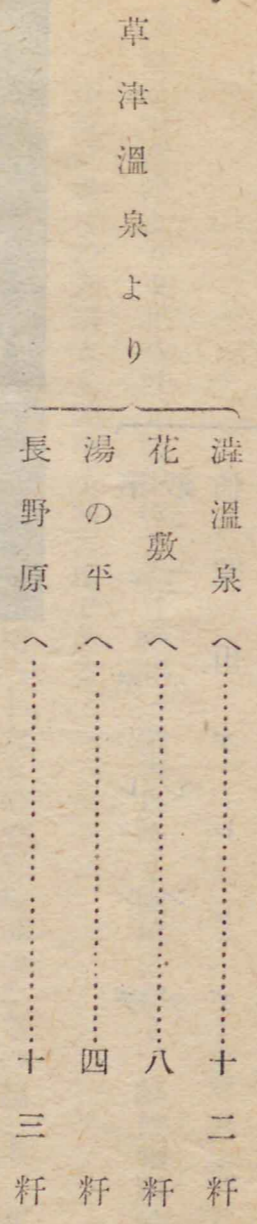 草津溫泉より
澁溫泉へ……………………十二粁
花敷へ……………………八粁
湯の平へ……………………四粁
長野原へ……………………十三粁